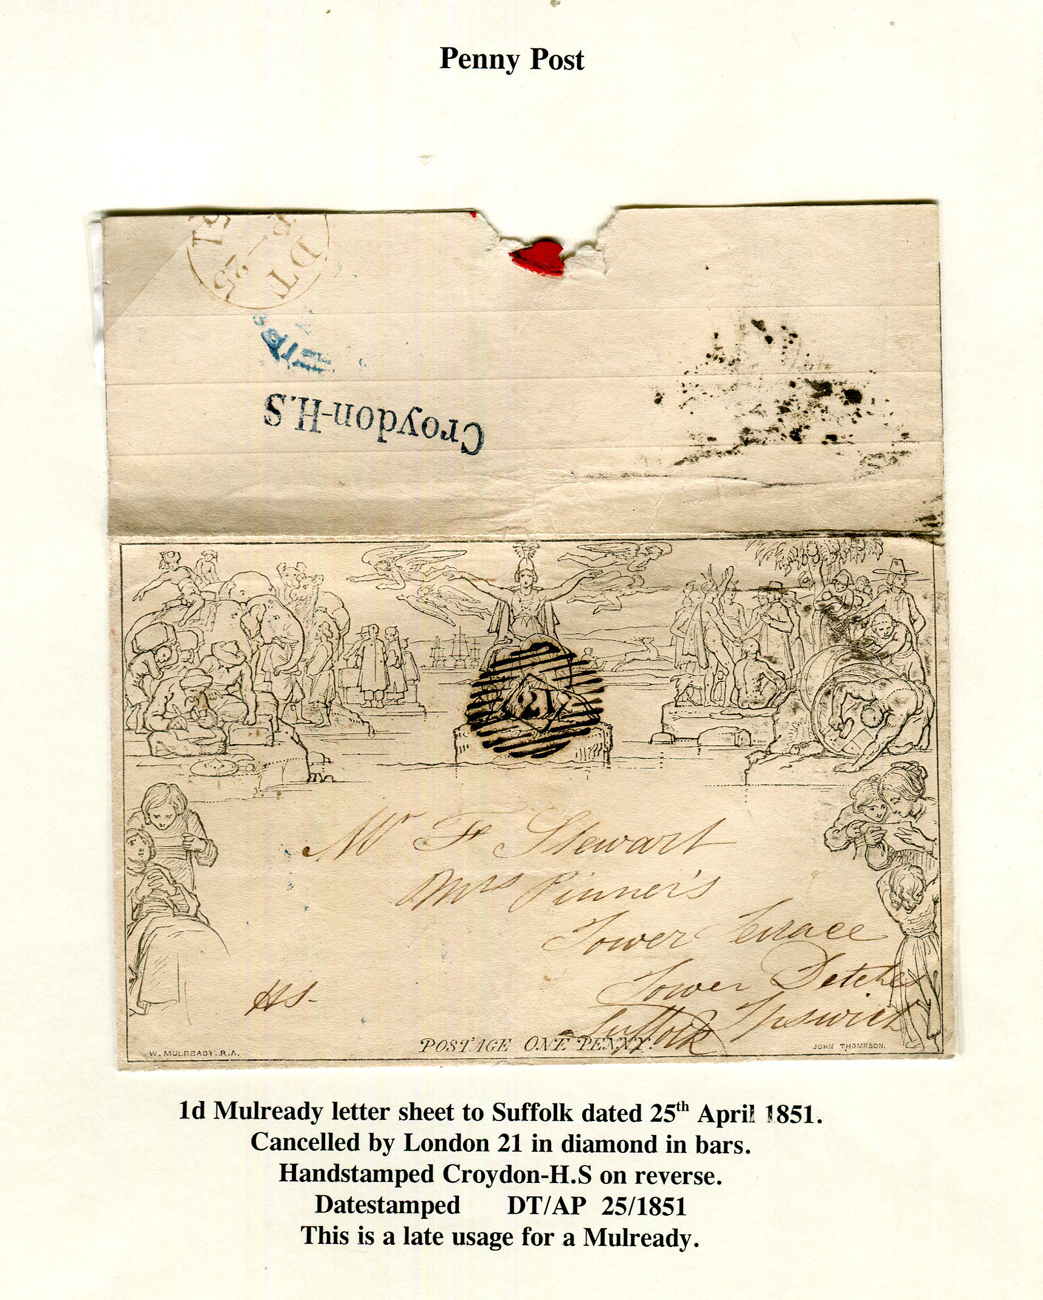 Penny Post
51
25
DT
Croydon-H.S
21
Mr F Stewart
Mrs Pinner's
Tower Terrace
Lower
Ipswich
Suffolk
Hs.
W. MULREADY. R.A.
POSTAGE ONE PENNY.
JOHN THOMPSON.
1d Mulready letter sheet to Suffolk dated 25th April 1851.
Cancelled by London 21 in diamond in bars.
Handstamped Croydon-H.S on reverse.
Datestamped DT/AP 25/1851
This is a late usage for a Mulready.